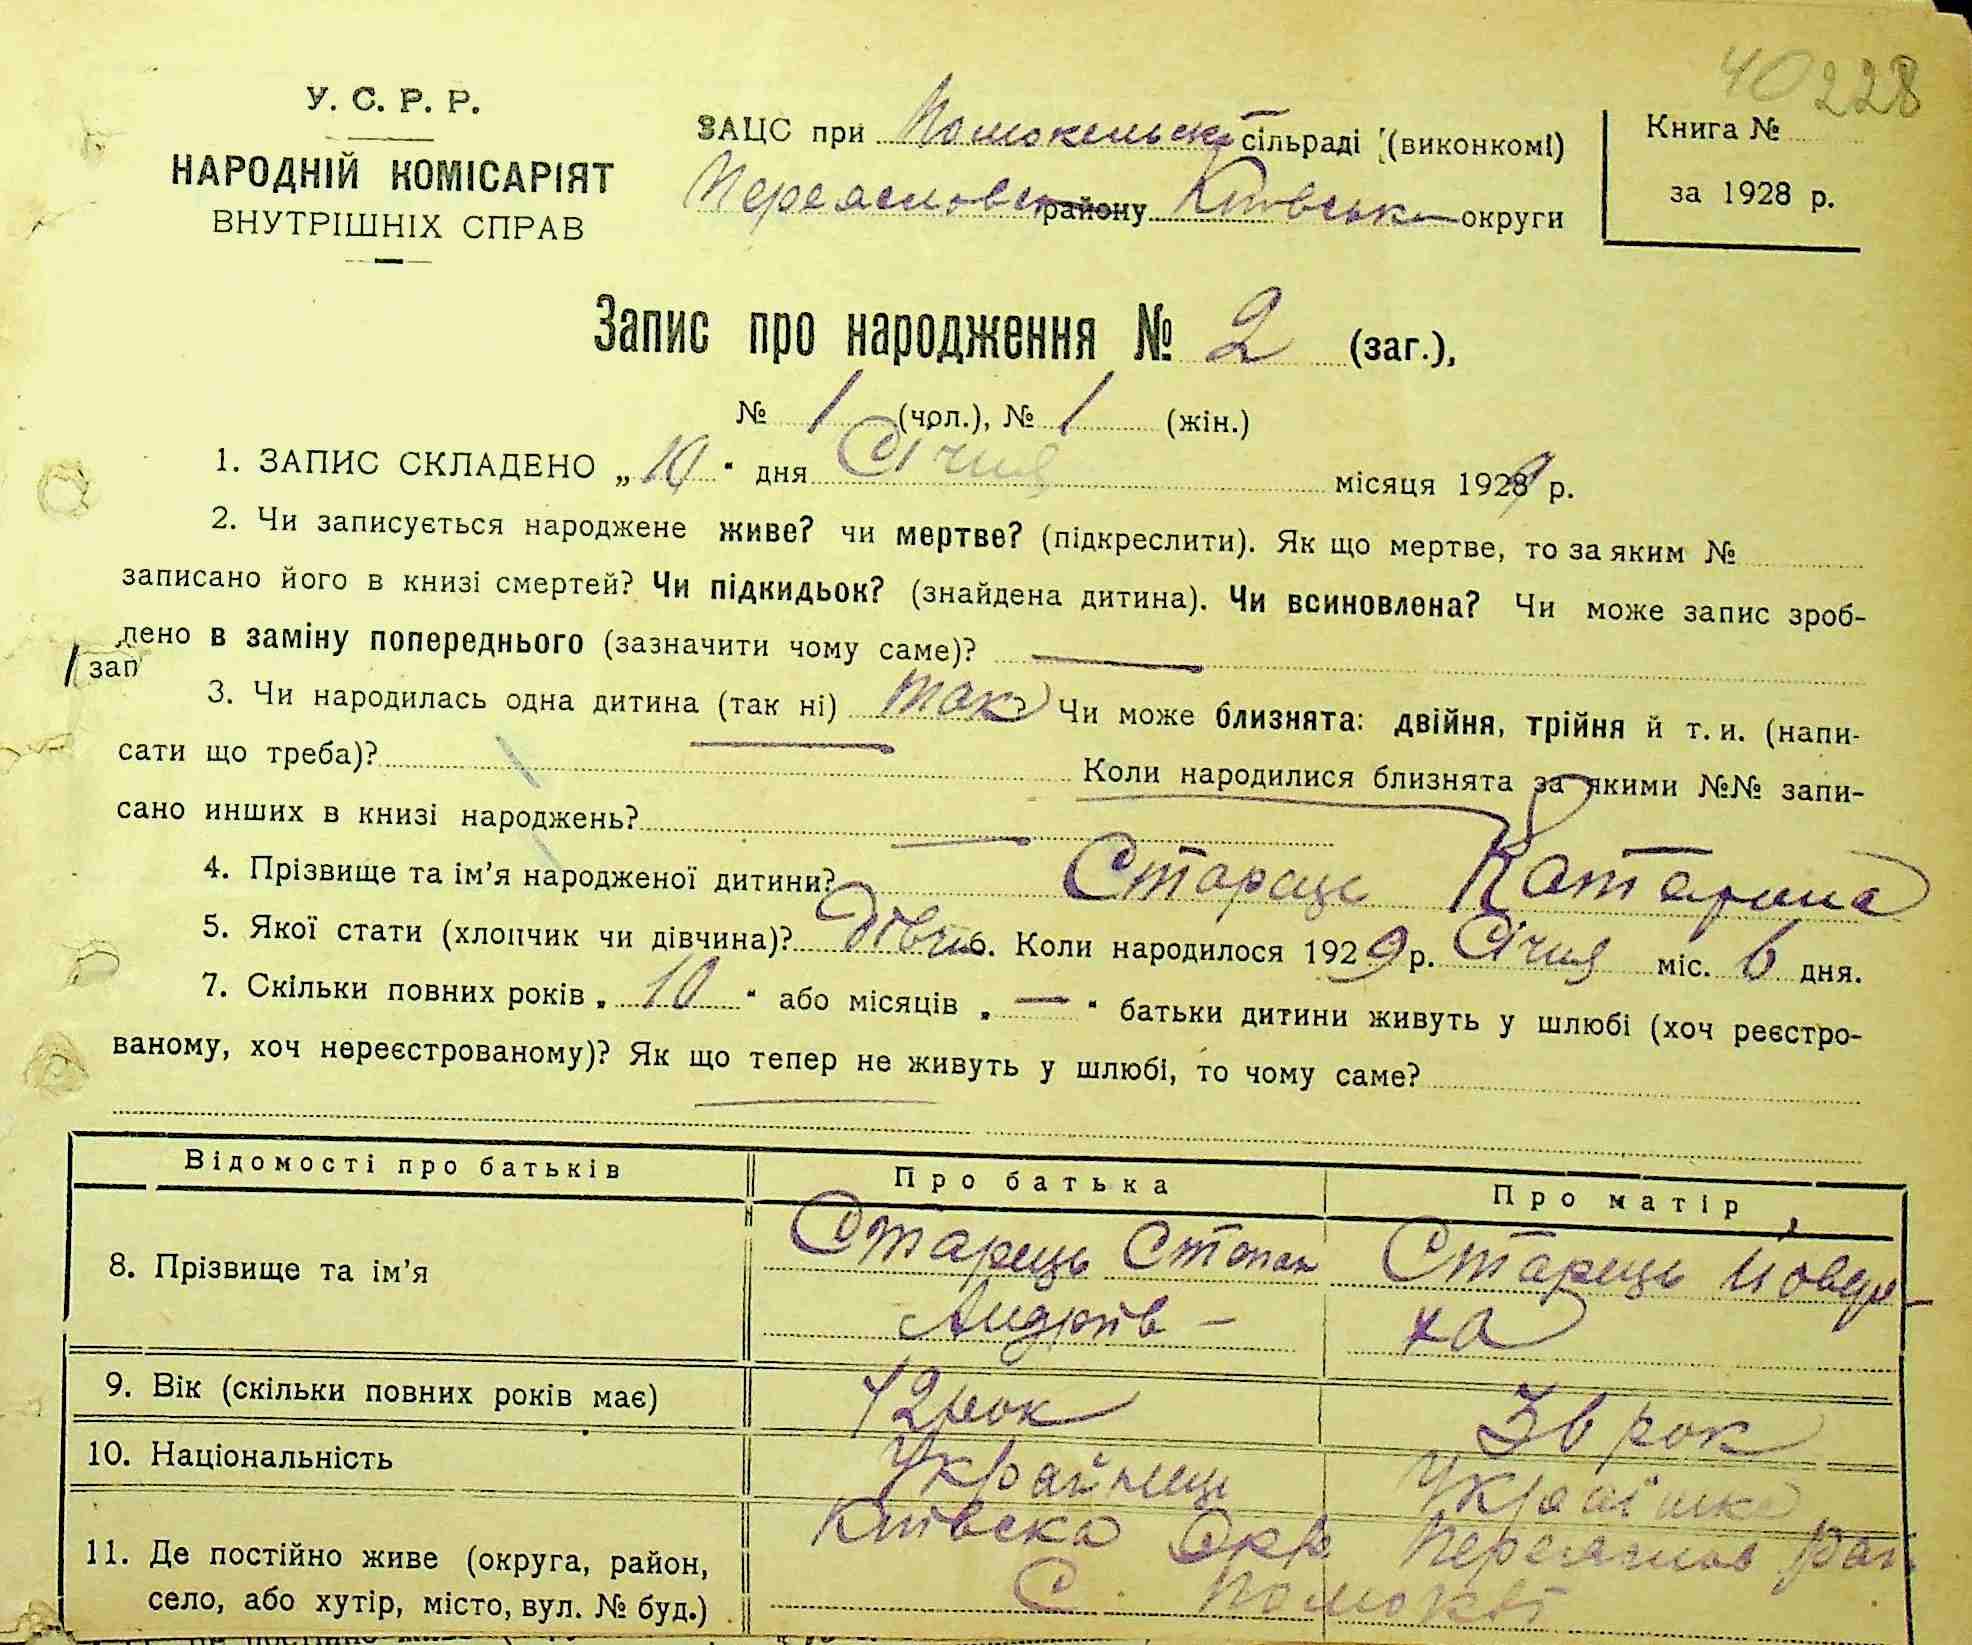 40 228
У. С. Р. Р.
НАРОДНІЙ КОМІСАРІЯТ
ВНУТРІШНІХ СПРАВ
ЗАЦС при Помокельські сільраді (виконкомі)
Переясловск району Київська округи
Книга №
за 1928 р.
Запис про народження № 2 (заг.),
№ 1 (чол.), № 1 (жін.)
1. ЗАПИС СКЛАДЕНО „10“ дня Січня місяця 1929 р.
2. Чи записується народжене живе? чи мертве? (підкреслити). Як що мертве, то за яким №
записано його в книзі смертей? Чи підкидьок? (знайдена дитина). Чи всиновлена? Чи може запис зроб-
лено в заміну попереднього (зазначити чому саме)? —
зап
3. Чи народилась одна дитина (так ні) так Чи може близнята: двійня, трійня й т. и. (напи-
сати що треба)? Коли народилися близнята за якими №№ запи-
сано инших в книзі народжень? —
4. Прізвище та ім’я народженої дитини? Стараць Катерина
5. Якої стати (хлопчик чи дівчина)? дівчи 6. Коли народилося 1929 р. Січня міс. 6 дня.
7. Скільки повних років „10“ або місяців „—“ батьки дитини живуть у шлюбі (хоч реєстро-
ваному, хоч нереєстрованому)? Як що тепер не живуть у шлюбі, то чому саме?
Відомості про батьків Про батька Про матір
8. Прізвище та ім’я Старець Степан Старець Йовдо-
Андріїв – ха
9. Вік (скільки повних років має) 42 рок 36 рок
10. Національність Українець Українка
11. Де постійно живе (округа, район, Київска Окр. Переяслов рай
село, або хутір, місто, вул. № буд.) С. Помоклі